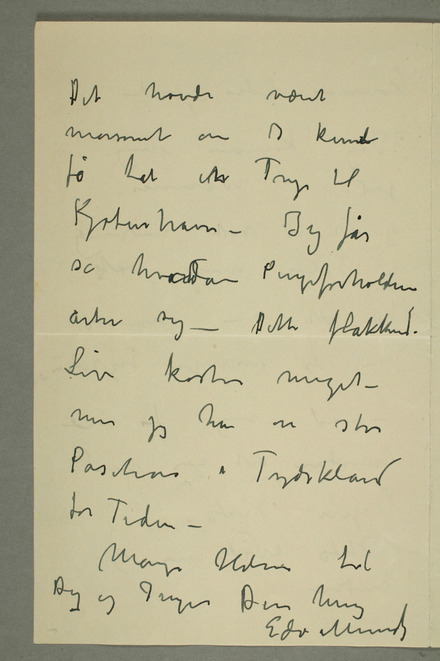 Det havde været
morsomt om I kunde
få tat en Trip til
Kjøbenhavn – Jeg får
se hvordan Pengeforholdene
arter sig – Dette flakkend.
Liv koster meget –
men jeg har en stor
Position i Tydskland
for Tiden –
Mange Hilsner til
Dig og Inger Din heng
Edv Munch